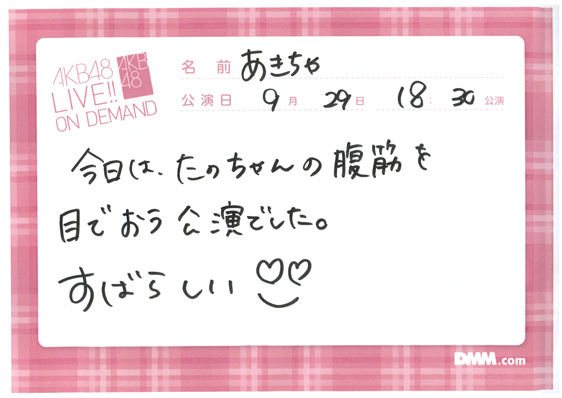 AKB48
LIVE!!
ON DEMAND
AKB
48
名前 あきちゃ
公演日 9月 29日 18:30 公演
今日は、たのちゃんの腹筋を
目でおう公演でした。
すばらしい
DMM.com